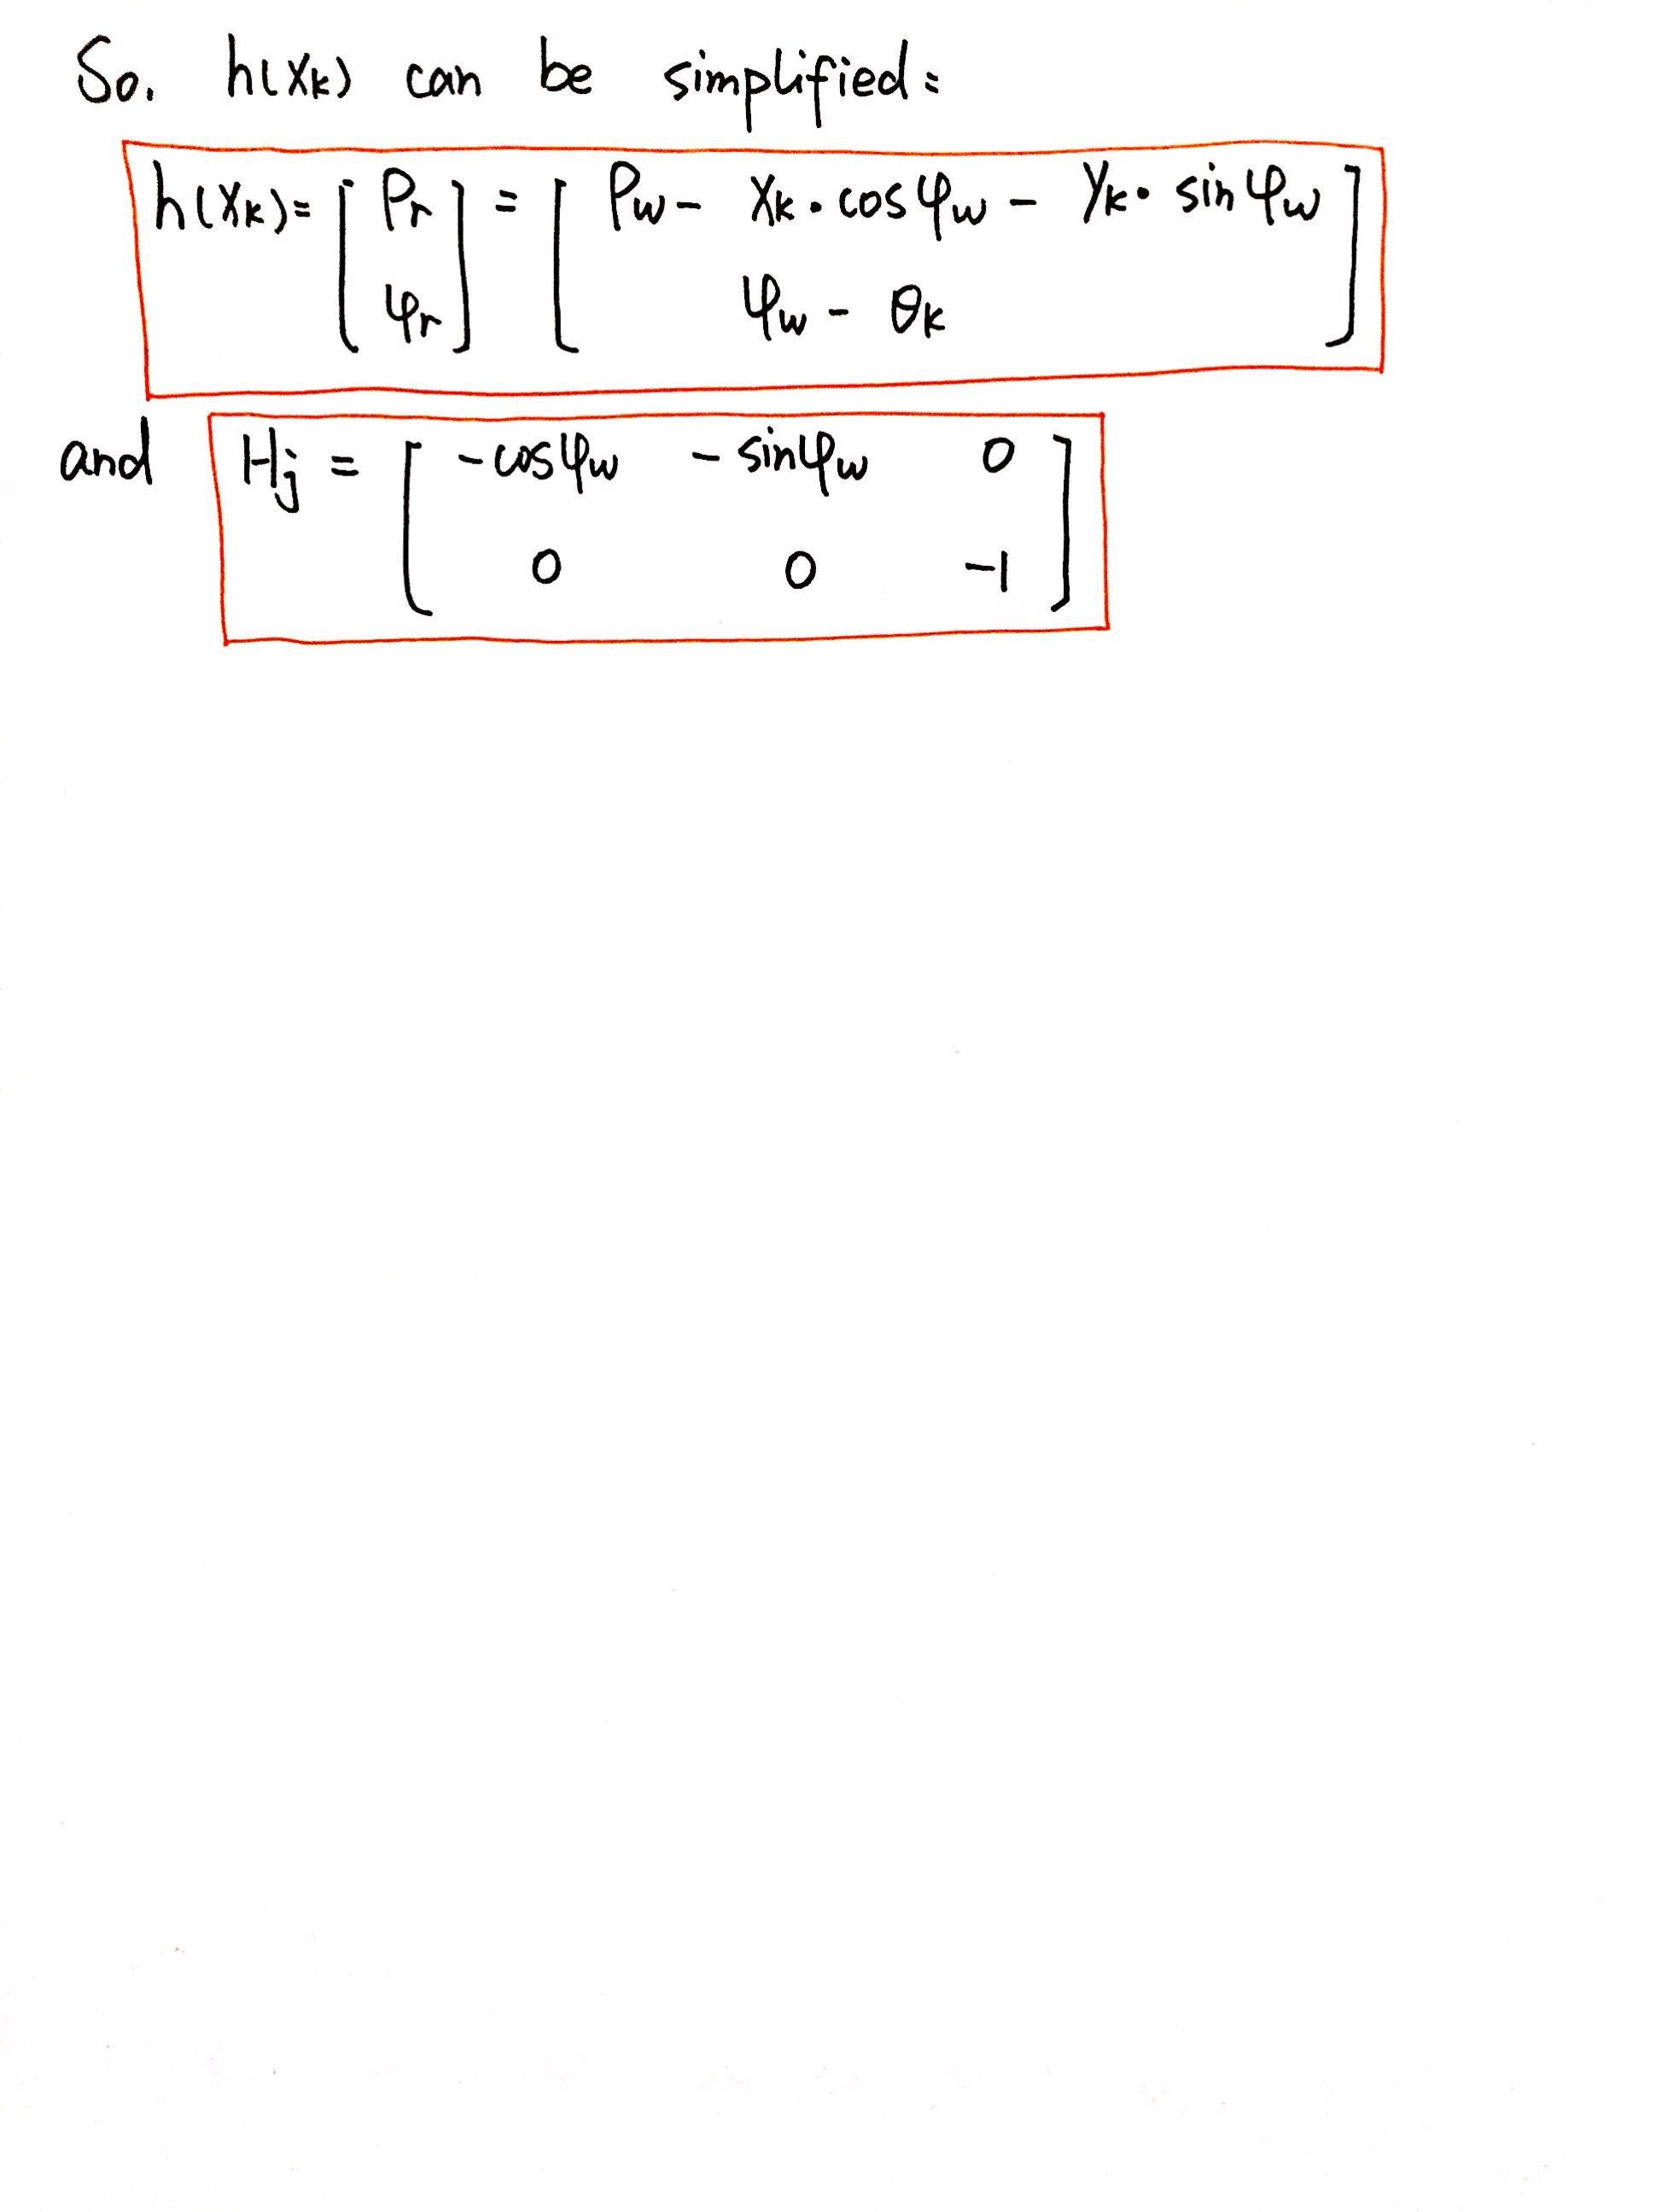 So. h(Xk) can be simplified:
h(Xk) = [ ρr ; φr ] = [ ρw - Xk · cosφw - Yk · sinφw ; φw - θk ]
and Hj = [ -cosφw -sinφw 0 ; 0 0 -1 ]